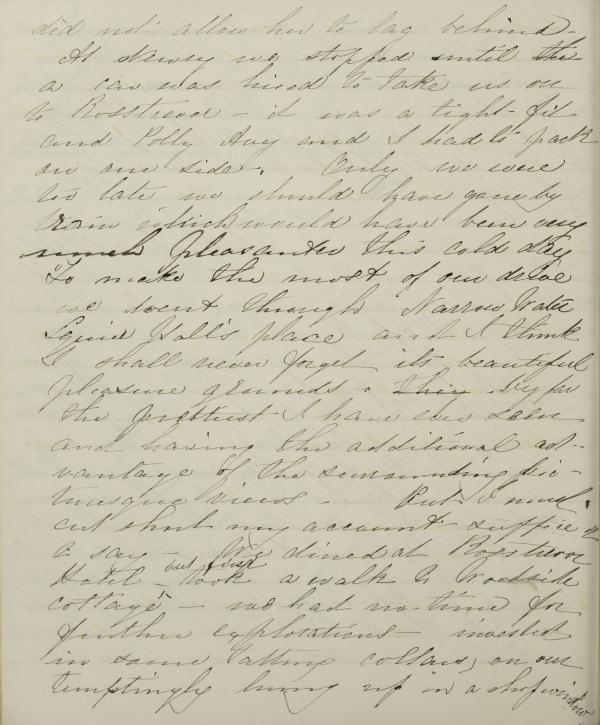 did not allow her to lag behind -
At Newry we stopped until the
a car was hired to take us on
to Rosstrevor - it was a tight-fit
and Polly Hay and I had to pack
on one side. Only we were
too late we should have gone by
train which would have been very
much pleasanter this cold day
To make the most of our drive
we went through Narrow Water
Squire Hall's place and I think
I shall never forget its beautiful
pleasure grounds. They by far
the prettiest I have ever seen
and having the additional ad-
vantage of the surrounding pic-
turesque views - But I must
cut short my account suffice it
to say - We dined at Rosstrevor
Hotel - but first took a walk to Woodside
cottage - we had no time for
further explorations - invested
in some tatting collars, on our
temptingly hung up in a shop window.